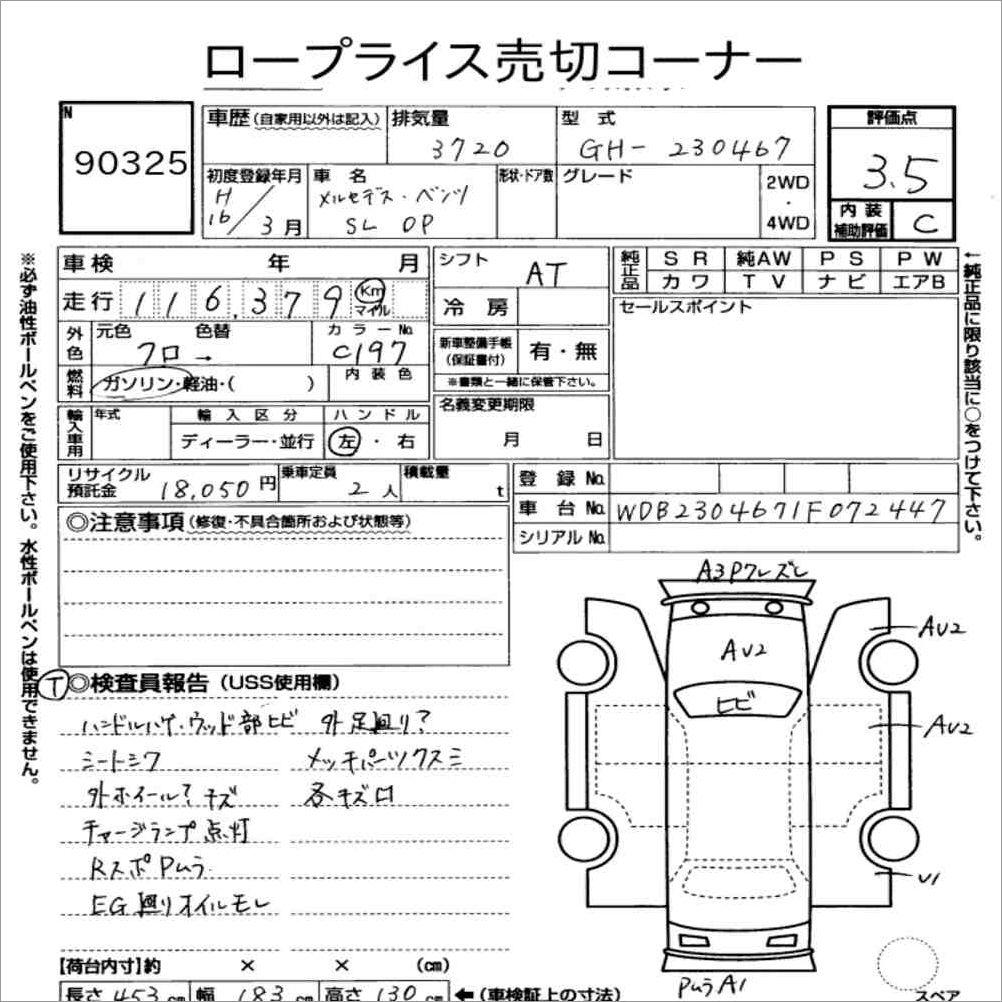 ロープライス売切コーナー
N
90325
車歴(自家用以外は記入)
排気量
3720
型式
GH- 230467
評価点
3.5
初度登録年月
H
16/3月
車名
メルセデス・ベンツ
SL OP
形状・ドア数
グレード
2WD
・
4WD
内装
補助評価
C
車検 年 月
走行 116,379 Km
マイル
外色
元色 色替
クロ →
カラーNo.
C197
燃料
ガソリン・軽油・( )
内装色
輸入車用
年式
輸入区分
ディーラー・並行
ハンドル
左・右
シフト
AT
冷房
新車整備手帳
(保証書付)
有・無
※書類と一緒に保管下さい。
名義変更期限
月 日
純正品
SR 純AW PS PW
カワ TV ナビ エアB
セールスポイント
リサイクル
預託金
18,050円
乗車定員
2人
積載量
t
登録No.
車台No. WDB2304671F072447
シリアルNo.
◎注意事項(修復・不具合箇所および状態等)
T
◎検査員報告(USS使用欄)
ハンドルハゲ・ウッド部ヒビ 外足廻り?
シートシワ メッキパーツクスミ
外ホイール?キズ 各キズロ
チャージランプ点灯
RスポPムラ
EG廻りオイルモレ
A3Pワレズレ
AU2
ヒビ
AU2
AU2
U1
PムラA1
スペア
【荷台内寸】約 × × (cm)
長さ453cm 幅183cm 高さ130cm ←(車検証上の寸法)
※必ず油性ボールペンをご使用下さい。水性ボールペンは使用できません。
←純正品に限り該当に○をつけて下さい。